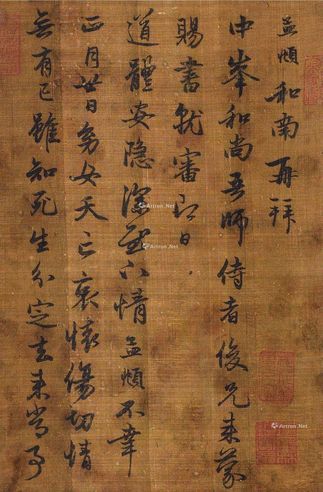 孟頫和南再拜
中峯和尚吾師侍者俊兄來蒙
賜書就審即日
道體安隐深慰下情孟頫不幸
正月廿日幼女夭亡哀懷傷切情
無有已雖知死生分定去来常事
Artron.Net
Artron.Net
Artron.Net